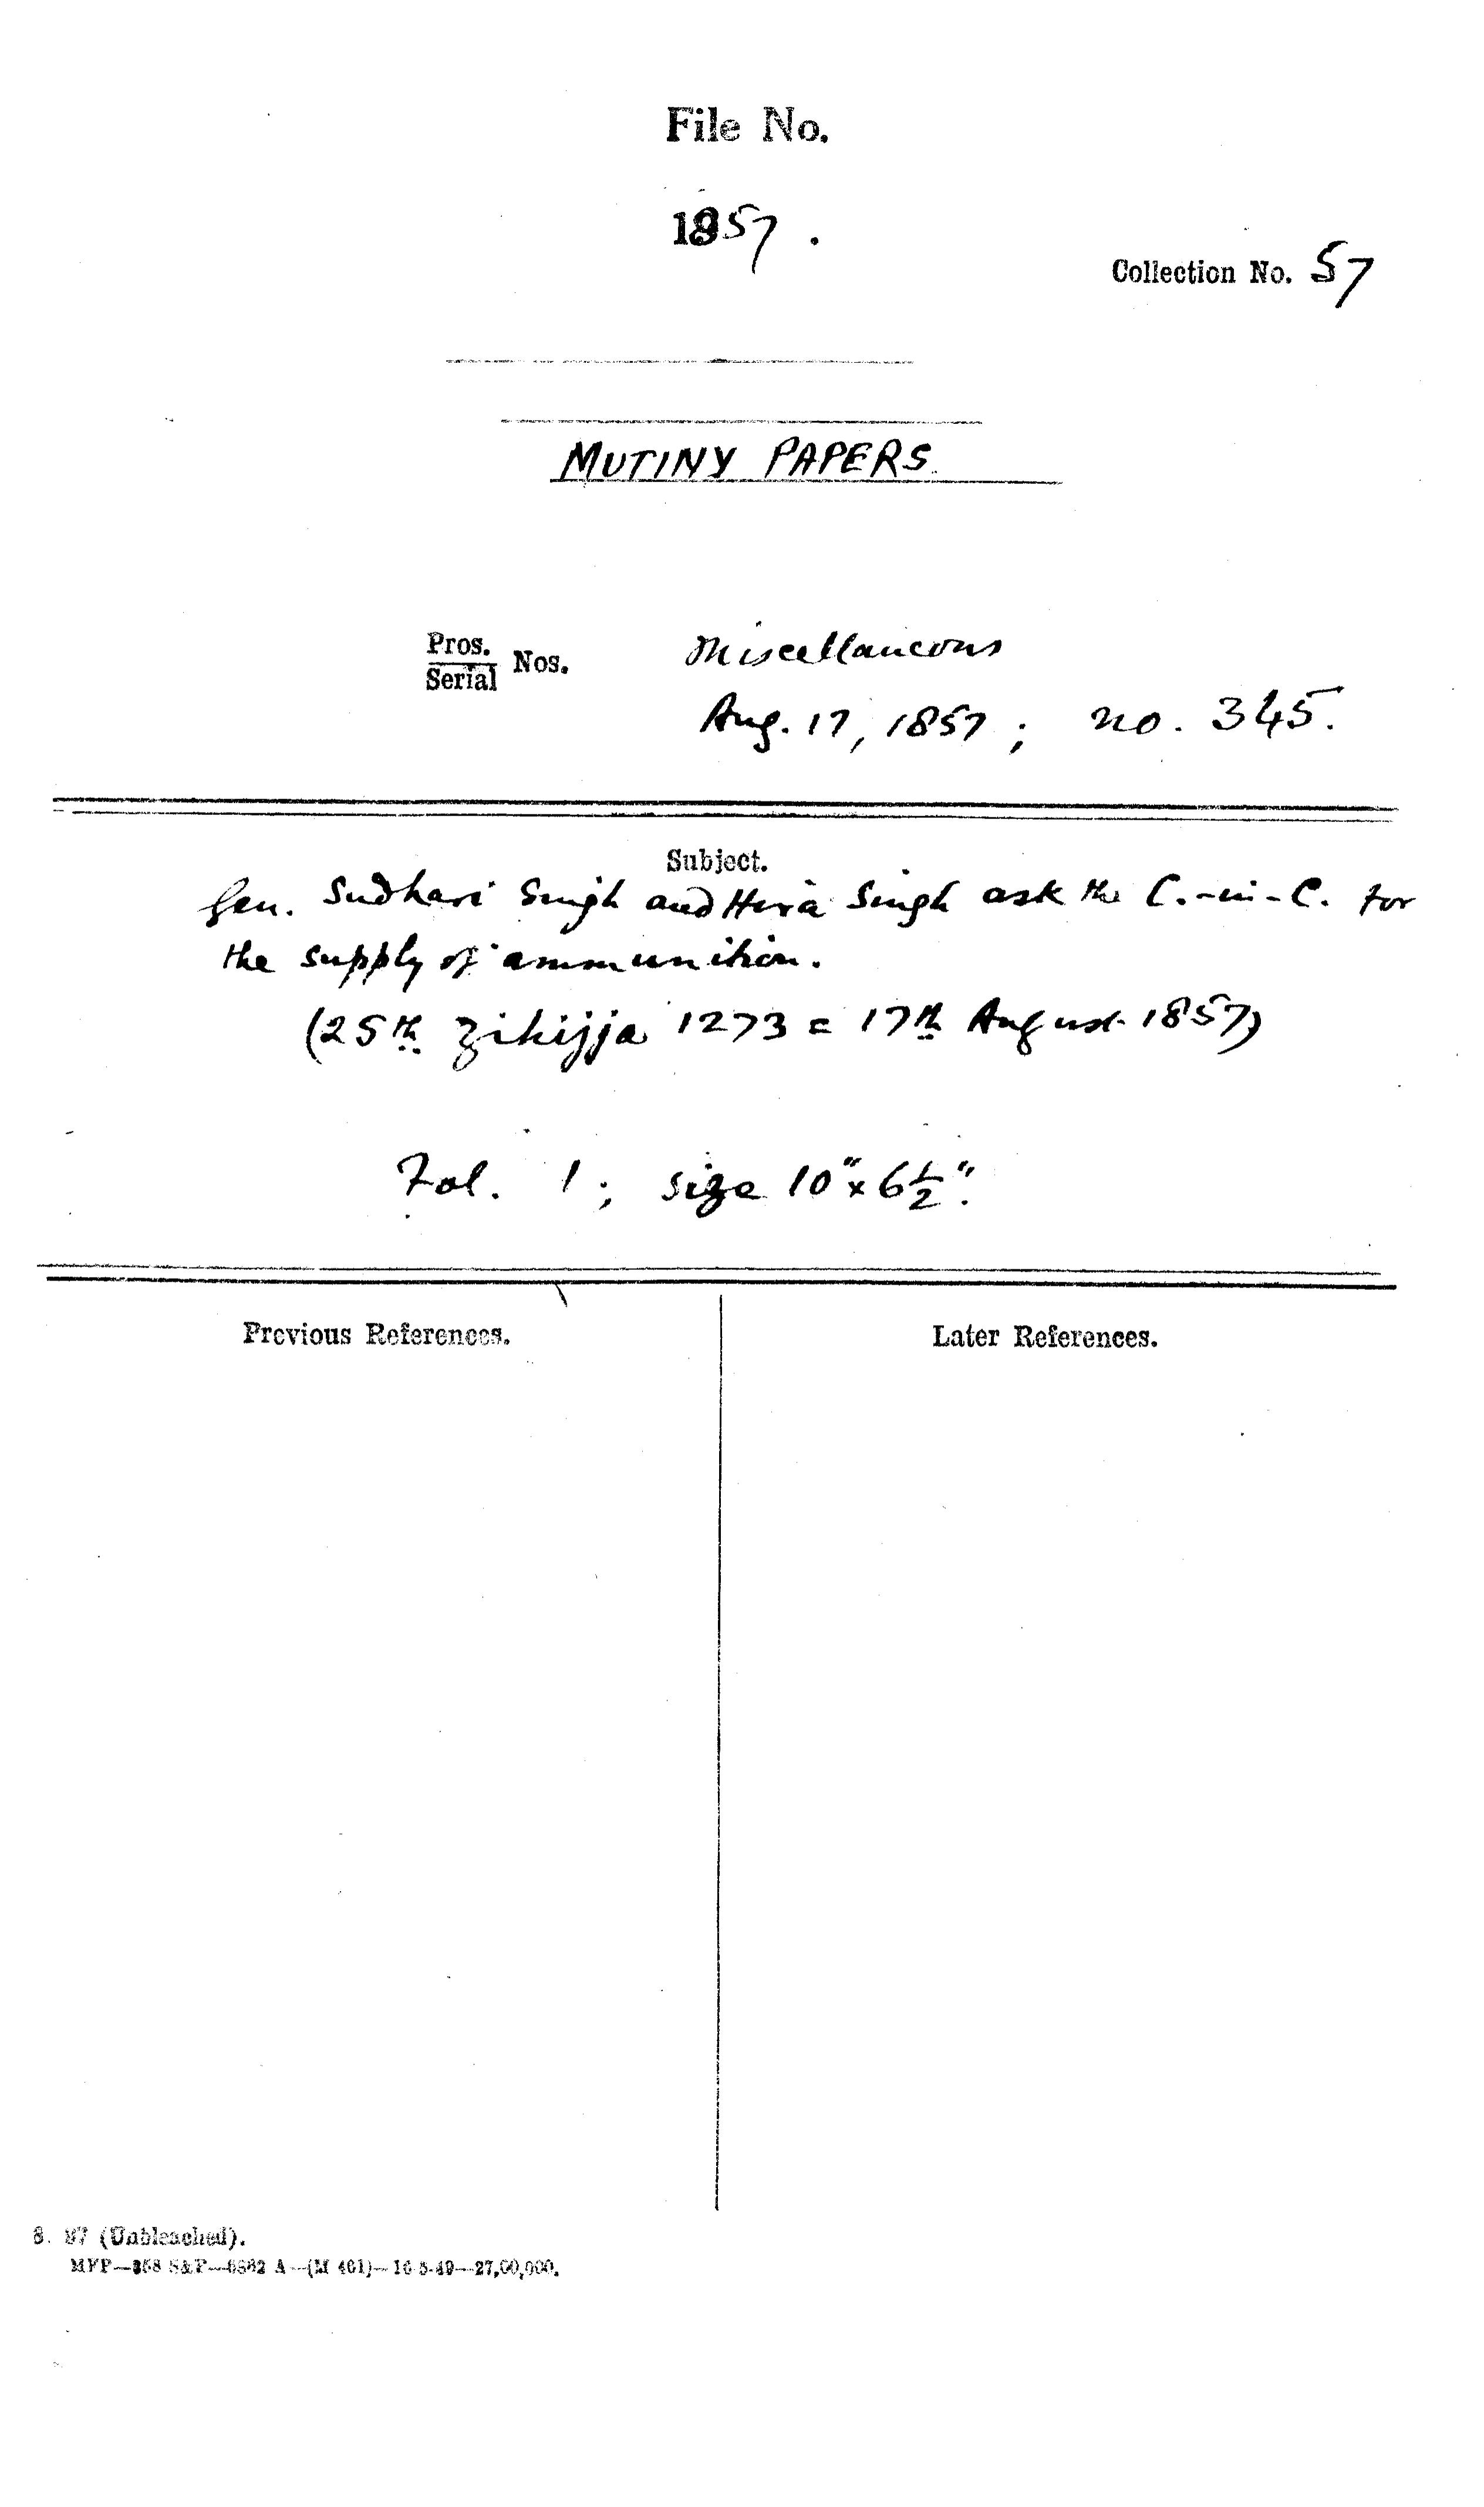 File No.
1857.
Collection No. 57
MUTINY PAPERS
Pros. Serial Nos. Miscellaneous
Aug. 17, 1857; no. 345.
Subject.
Gen. Sudhari Singh and Hira Singh ask the C.-in-C. for
the supply of ammunition.
(25th Zihijja 1273 = 17th August 1857)
Fol. 1; size 10" x 6 1/2".
Previous References.
Later References.
S. 97 (Unbleached).
MFP—358 S&P—6862 A—(M 461)—16-5-49—27,00,000.